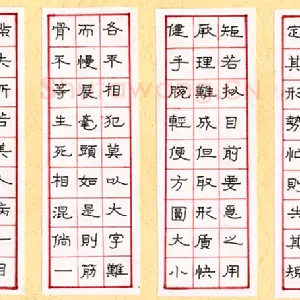 定其形勢勿失其規
矩若擬目前要急之用
厥理難成但取形質快
健手腕輕便方圓大小
各不相犯莫以大字難
而慢展毫頭如是則筋
骨不等生死相混倘一
點失所若美人病一目